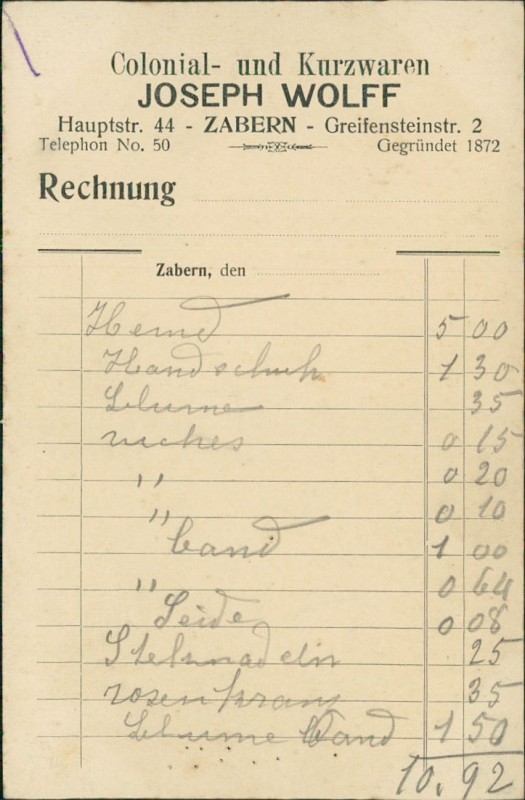 Colonial- und Kurzwaren
JOSEPH WOLFF
Hauptstr. 44 - ZABERN - Greifensteinstr. 2
Telephon No. 50 Gegründet 1872
Rechnung
Zabern, den
Hemd 5 00
Handschuh 1 30
Blume 35
ruches 0 15
" 0 20
" 0 10
band 1 00
" 0 64
Seide 0 08
Steknadeln 25
rosenkranz 35
Blume band 1 50
10.92